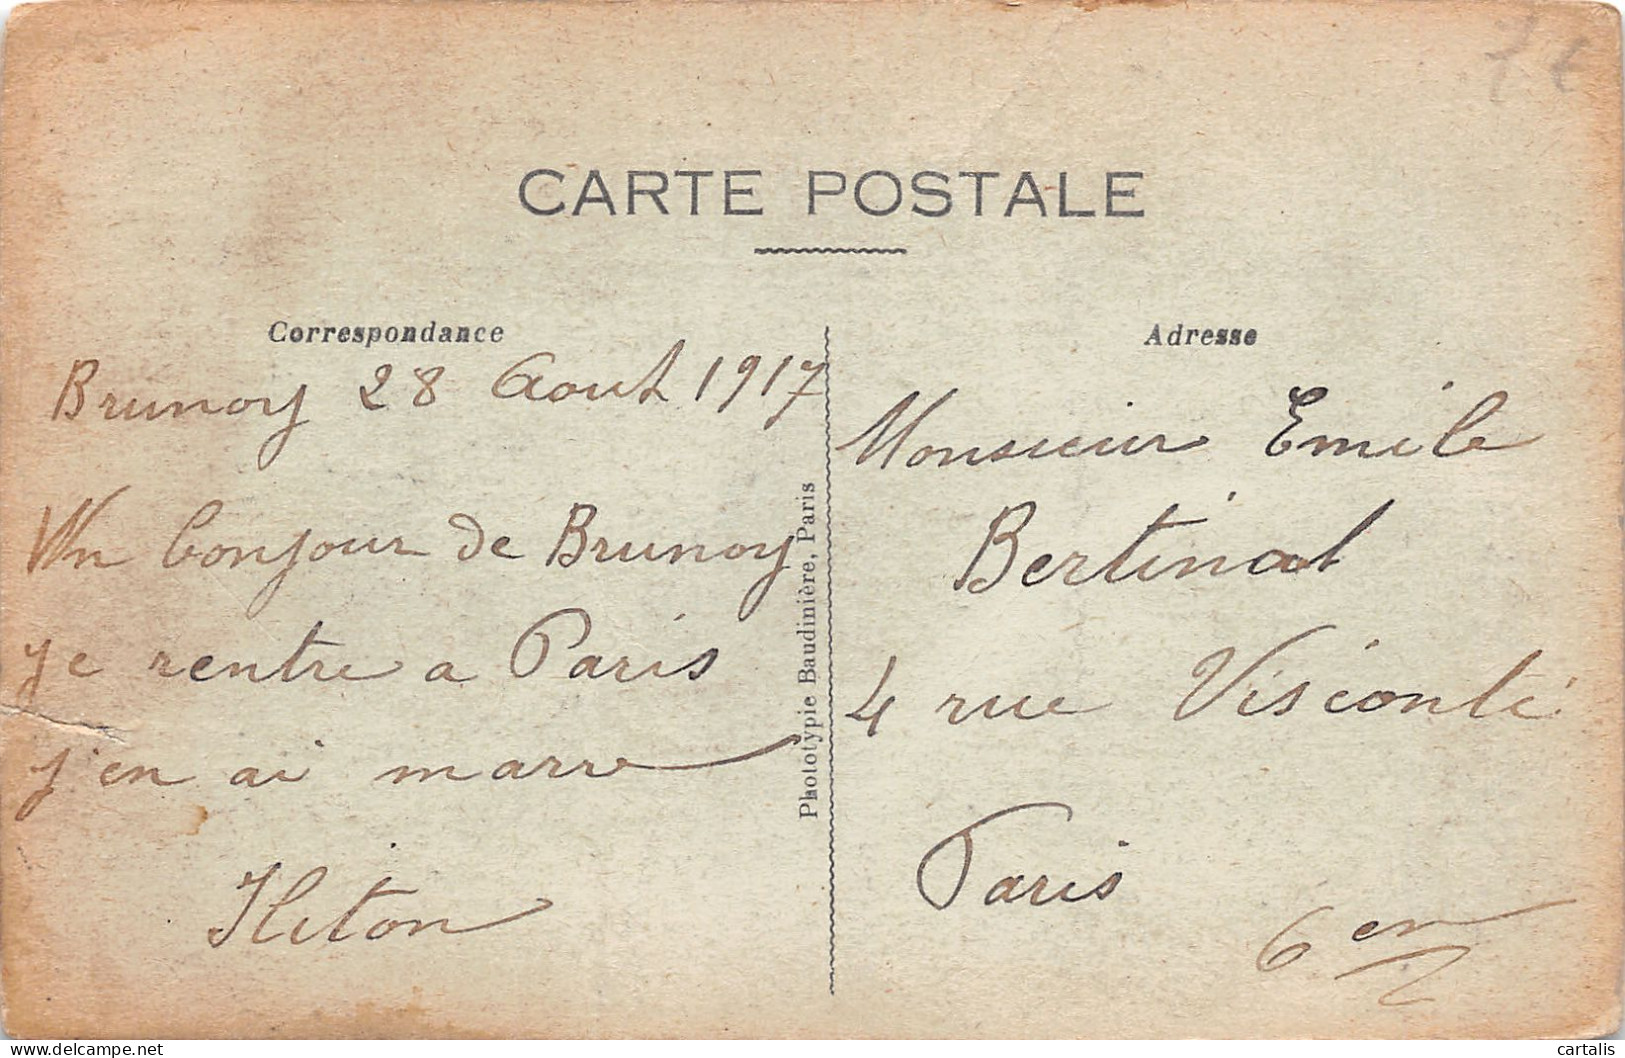 7 €
CARTE POSTALE
Correspondance
Brunoy 28 Aout 1917
Un bonjour de Brunoy
je rentre a Paris
j'en ai marre
Phototypie Baudinière, Paris
Adresse
Monsieur Emile
Bertinal
4 rue Visconti
Paris
6 em
delcampe.net
cartalis